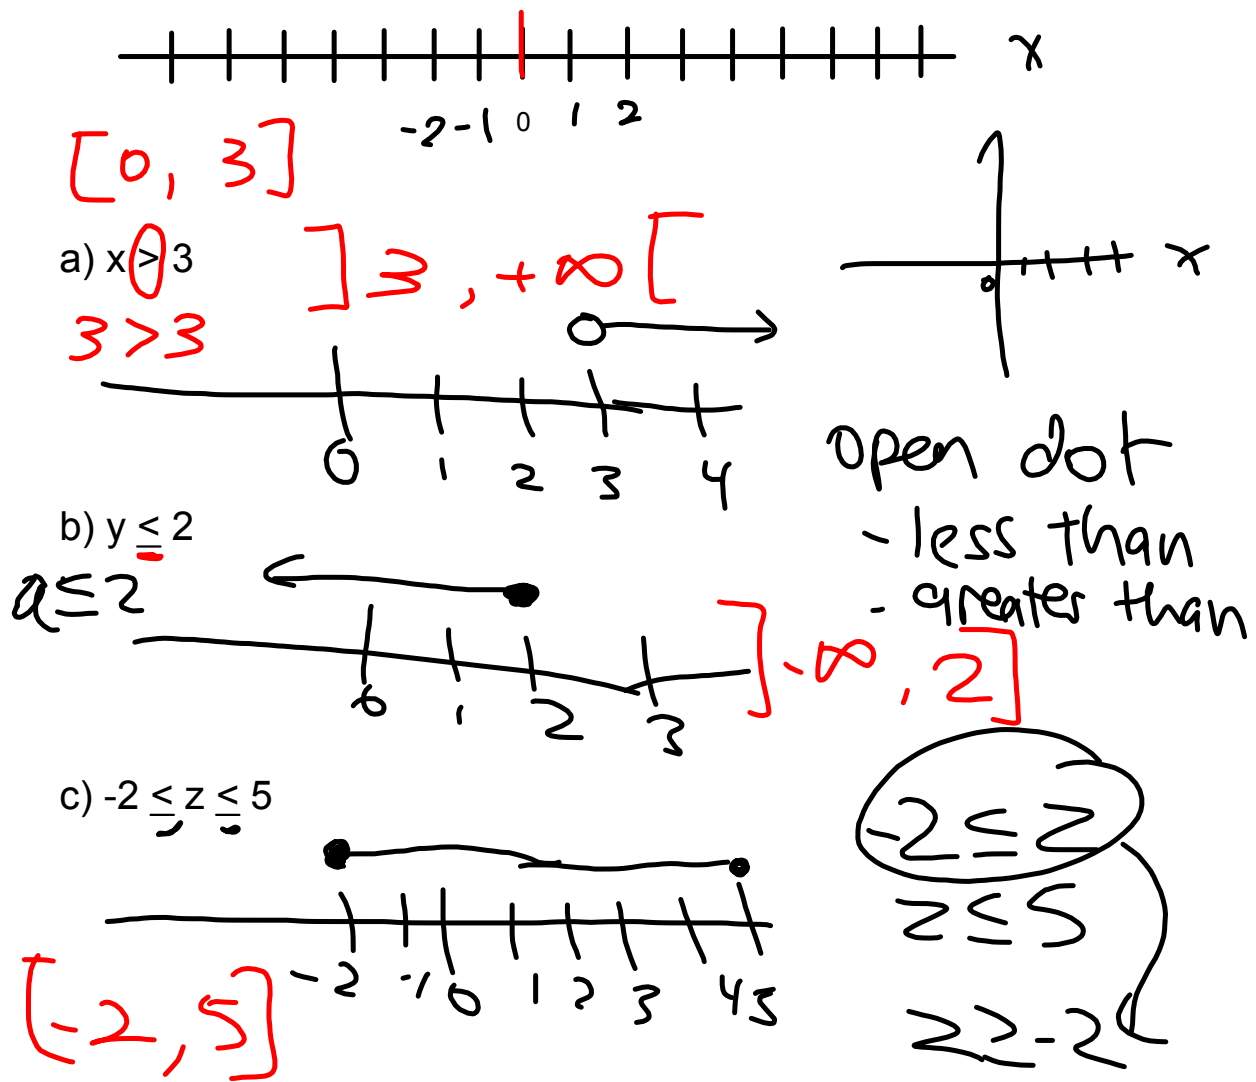 x
-2 -1 0 1 2
[0, 3]
a) x > 3
]3, +∞[
x
0
3 > 3
0 1 2 3 4
open dot
- less than
- greater than
b) y ≤ 2
a ≤ 2
]-∞, 2]
0 1 2 3
c) -2 ≤ z ≤ 5
-2 ≤ z
z ≤ 5
-2 -1 0 1 2 3 4 5
[-2, 5]
z ≥ -2